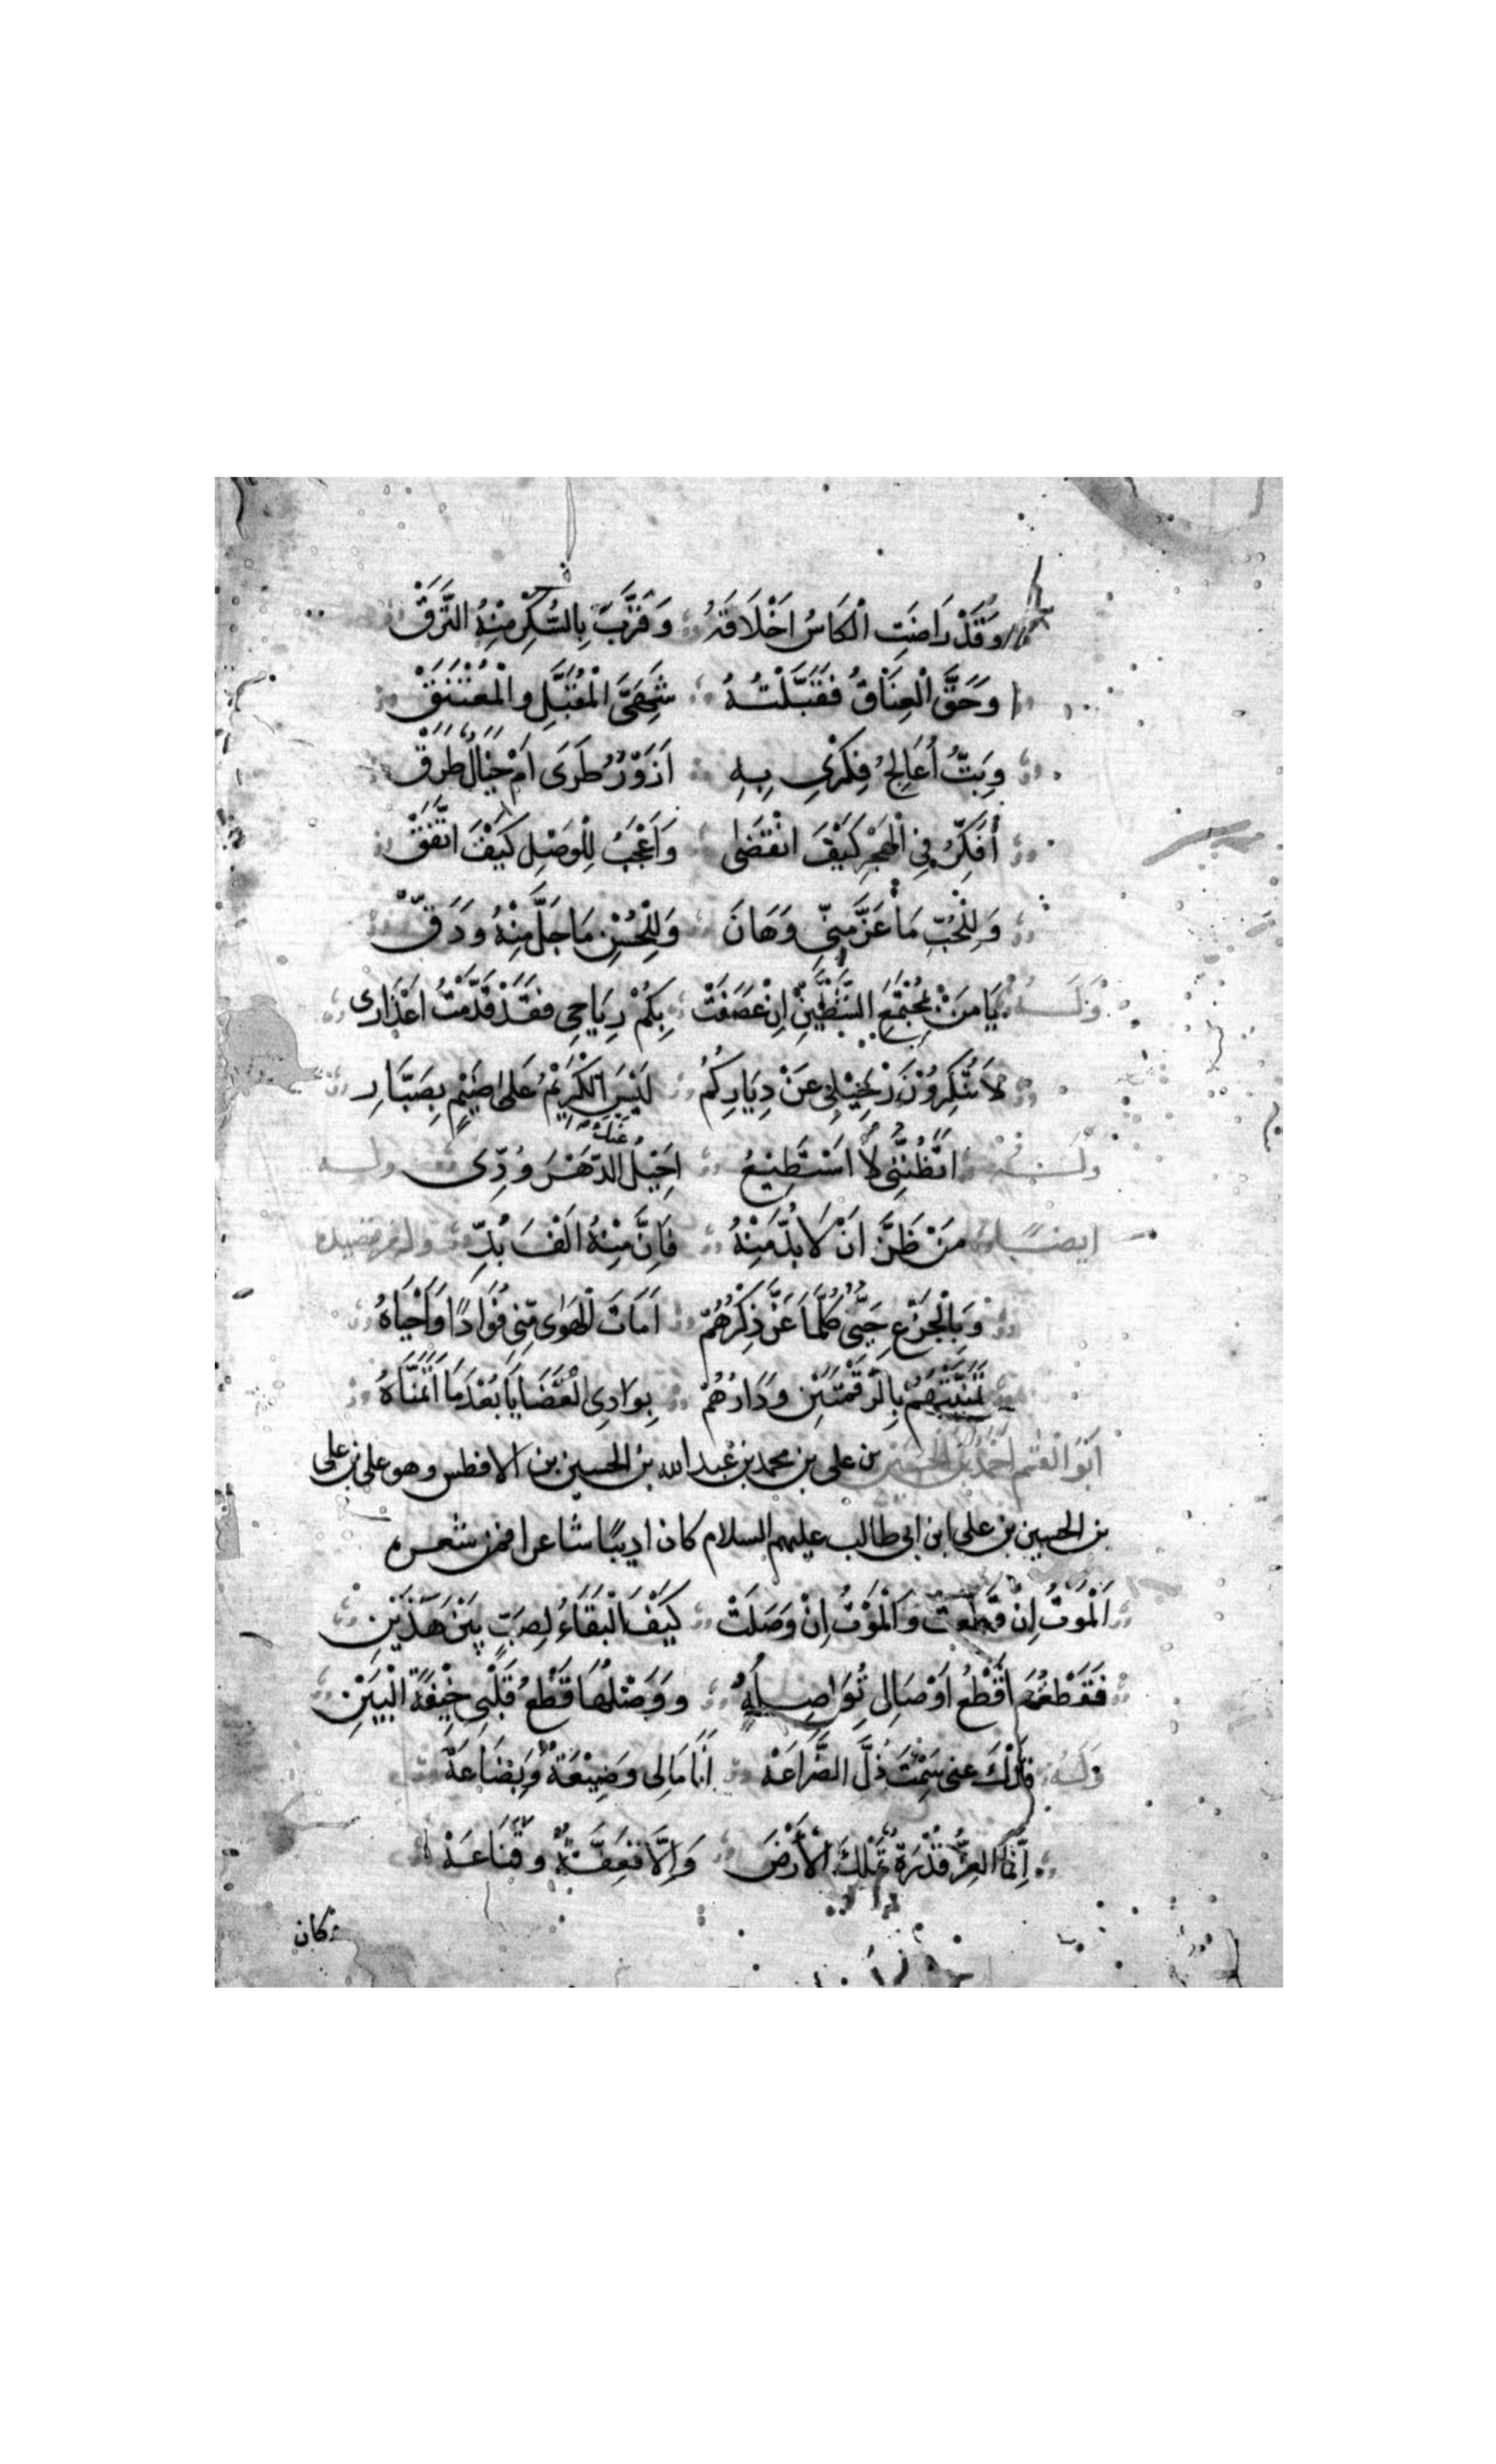 وَقَدْ رَاضَتِ الْكَاسُ اَخْلَاقَهُ وَقَرَّبَ بِالسُّكْرِ مِنْهُ النَّزَقْ
وَحَقَّ الْعِنَاقُ فَقَبَّلْتُهُ شَهِىَّ الْمُقَبَّلِ وَالْمُعْتَنَقْ
وَبِتُّ اُعَالِجُ فِكْرِي بِهِ اَزَوْرٌ طَرَى اَمْ خَيَالٌ طَرَقْ
اُفَكِّرُ فِي الْهَجْرِ كَيْفَ انْقَضَى وَاَعْجَبُ لِلْوَصْلِ كَيْفَ اتَّفَقْ
وَلِلْحُبِّ مَا عَزَّ مِنِّي وَهَانَ وَلِلْحُسْنِ مَا جَلَّ مِنْهُ وَدَقّْ
وَلَهُ يَا مَنْ بِمُجْتَمَعِ الشَّطَّيْنِ اِنْ عَصَفَتْ بِكُمْ رِيَاحِي فَقَدْ قَدَّمْتُ اَعْذَارِى
لَا تُنْكِرُوْنَ رَحِيْلِي عَنْ دِيَارِكُمُ لَيْسَ الْكَرِيْمُ عَلَى ضَيْمٍ بِصَبَّارِ
وَلَهُ اتَظُنُّنِي لَا اسْتَطِيْعُ اُحِيْلُ عَنْكَ الدَّهْرَ وُدِّى وله
ايضًا مَنْ ظَنَّ اَنْ لَا بُدَّ مِنْهُ فَاِنَّ مِنْهُ اَلْفَ بُدِّ وله من قصيدة
وَبِالْجِزْعِ حَيٌّ كُلَّمَا عَنَّ ذِكْرُهُمْ اَمَاتَ الْهَوَى مِنِّي فُؤَادًا وَاَحْيَاهُ
تَمَنَّيْتُهُمْ بِالرَّقْمَتَيْنِ وَدَارُهُمْ بِوَادِي الْغَضَا يَا بُعْدَ مَا اَتَمَنَّاهُ
اَبُو الْقسم اَحْمَدُ بْنُ الحسين بن علي بن محمد بن عبد الله بن الحسين بن الافطس وهو علي بن علي
بن الحسين بن علي ابن ابي طالب عليهم السلام كان اديبًا شاعرا فمن شعره
اَلْمَوْتُ اِنْ قَطَعَتْ وَالْمَوْتُ اِنْ وَصَلَتْ كَيْفَ الْبَقَاءُ لِصَبٍّ بَيْنَ هَذَيْنِ
فَقَطْعُهَا قَطْعُ اَوْصَالِي تُوَاصِلُهُ وَوَصْلُهَا قَطْعُ قَلْبِي خِيْفَةَ الْبَيْنِ
وَلَهُ عني ذُلَّ الضَّرَاعَهْ اَنَا مَالِي وَضَيْعَةٌ وَبِضَاعَهْ
اِنَّمَا العِزُّ قُدْرَةٌ تَمْلِكُ الْاَرْضَ وَاِلَّا فَعِفَّةٌ وَقَنَاعَهْ
كان